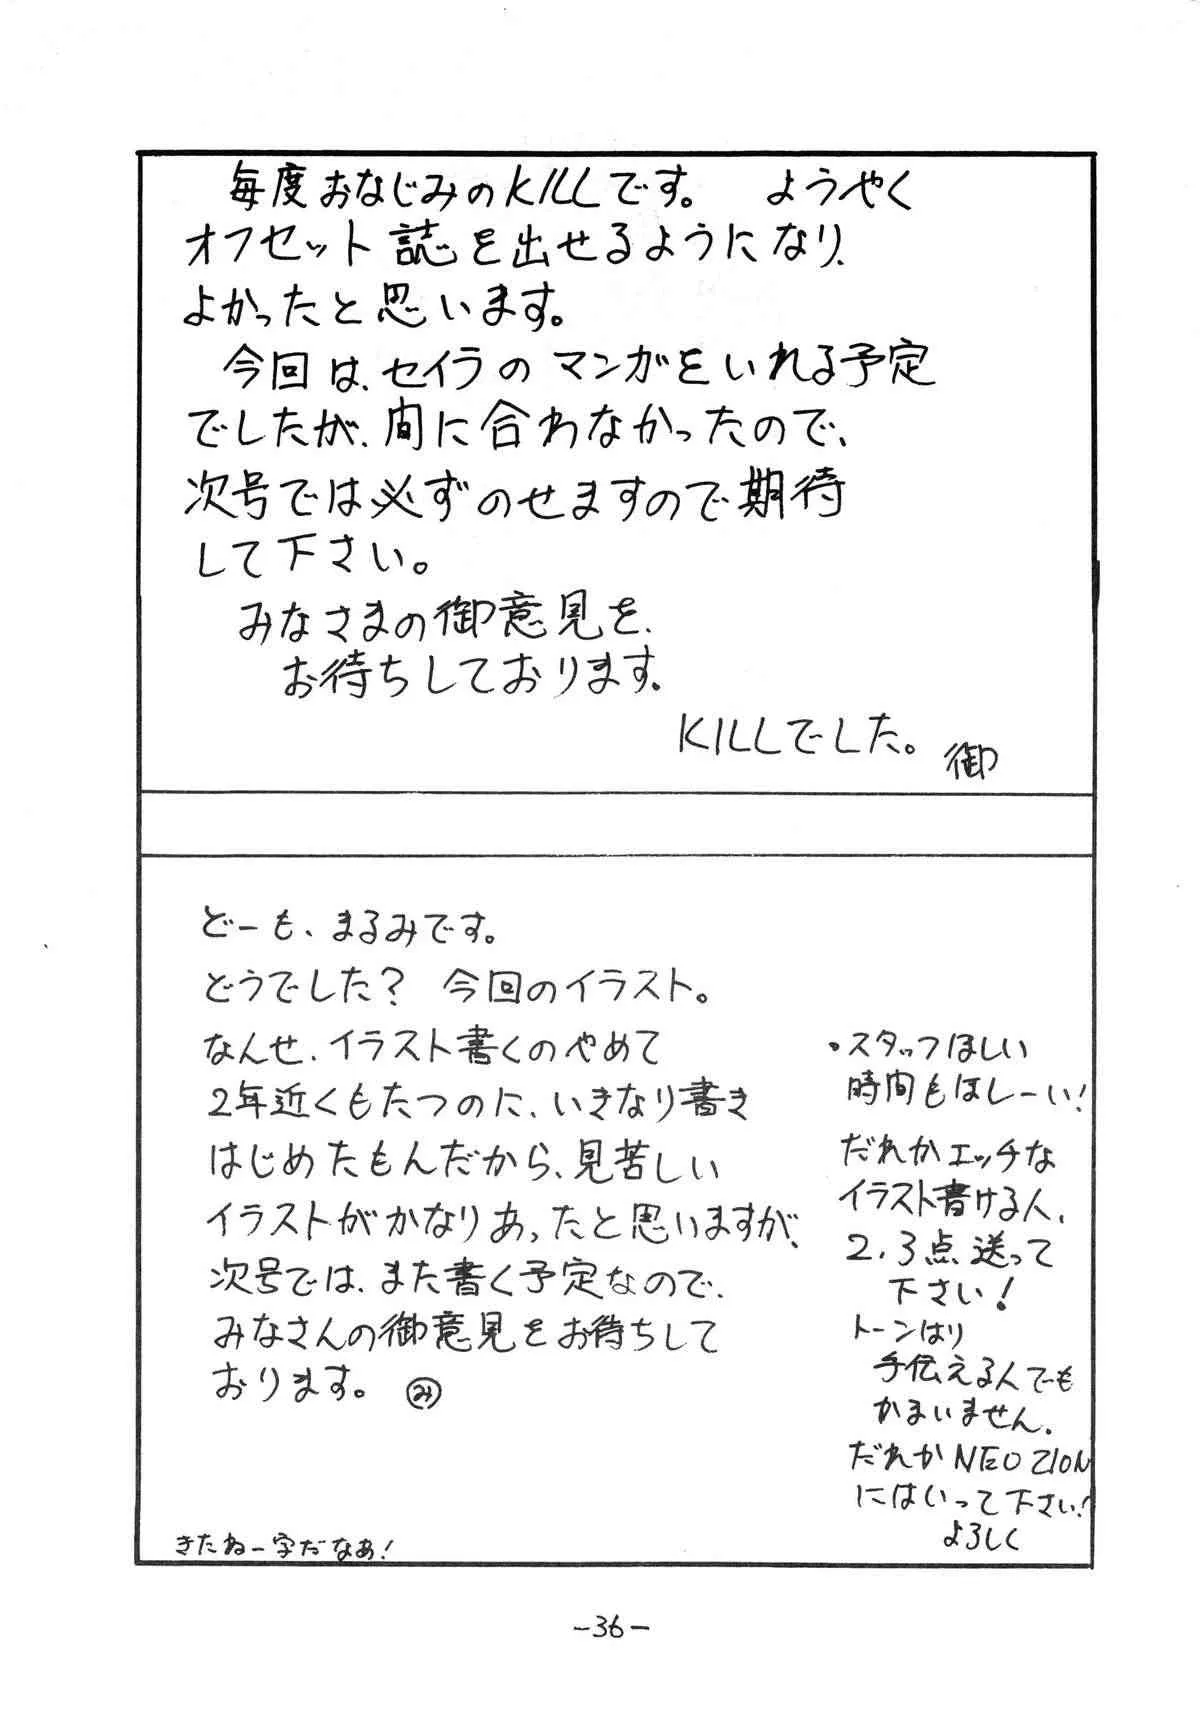 毎度おなじみのKILLです。 ようやく
オフセット誌を出せるようになり、
よかったと思います。
今回は、セイラのマンガをいれる予定
でしたが、間に合わなかったので、
次号では必ずのせますので期待
して下さい。
みなさまの御意見を、
お待ちしております。
KILLでした。 御
どーも、まるみです。
どうでした? 今回のイラスト。
なんせ、イラスト書くのやめて
2年近くもたつのに、いきなり書き
はじめたもんだから、見苦しい
イラストがかなりあったと思いますが、
次号では、また書く予定なので、
みなさんの御意見をお待ちして
おります。 み
・スタッフほしい
時間もほしーい!
だれかエッチな
イラスト書ける人、
2、3点送って
下さい!
トーンはり
手伝える人でも
かまいません。
だれかNEO ZION
にはいって下さい!
よろしく
きたねー字だなあ!
-36-